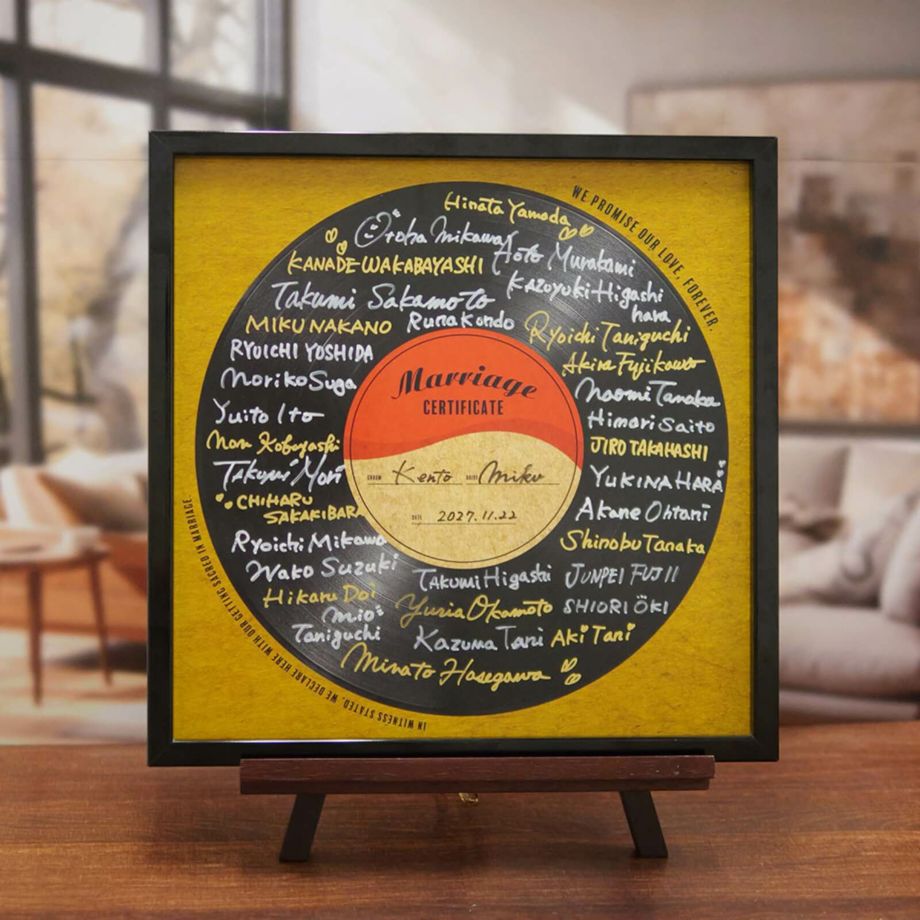 WE PROMISE OUR LOVE, FOREVER.
Hinata Yamada
Otoha Mikawa
Aoto Murakami
KANADE WAKABAYASHI
Kazuyuki Higashi
hara
Takumi Sakamoto
MIKU NAKANO
Runa Kondo
Ryoichi Taniguchi
RYUICHI YOSHIDA
Akira Fujikawa
Noriko Suga
Naomi Tanaka
Yuito Ito
Himari Saito
Kobayashi
JIRO TAKAHASHI
Takumi Mori
YUKINA HARA
CHIHARU
SAKAKIBARA
Akane Ohtani
Ryoichi Mikawa
Shinobu Tanaka
Wako Suzuki
TAKUMI Higashi
JUNPEI FUJII
Hikaru Doi
Yuria Okamoto
SHIORI OKI
Mio
Taniguchi
KAZUMA TANI
AKI TANI
Minato Hasegawa
Marriage
CERTIFICATE
GROOM Kento BRIDE Miku
DATE 2027.11.22
IN WITNESS STATED, WE DECLARE HERE WITH OUR GETTING SACRED IN MARRIAGE.